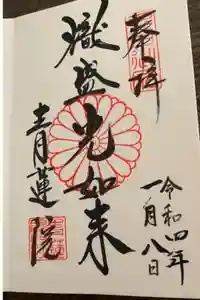 奉拝
熾盛光如来
青蓮院
令和四年
一月八日